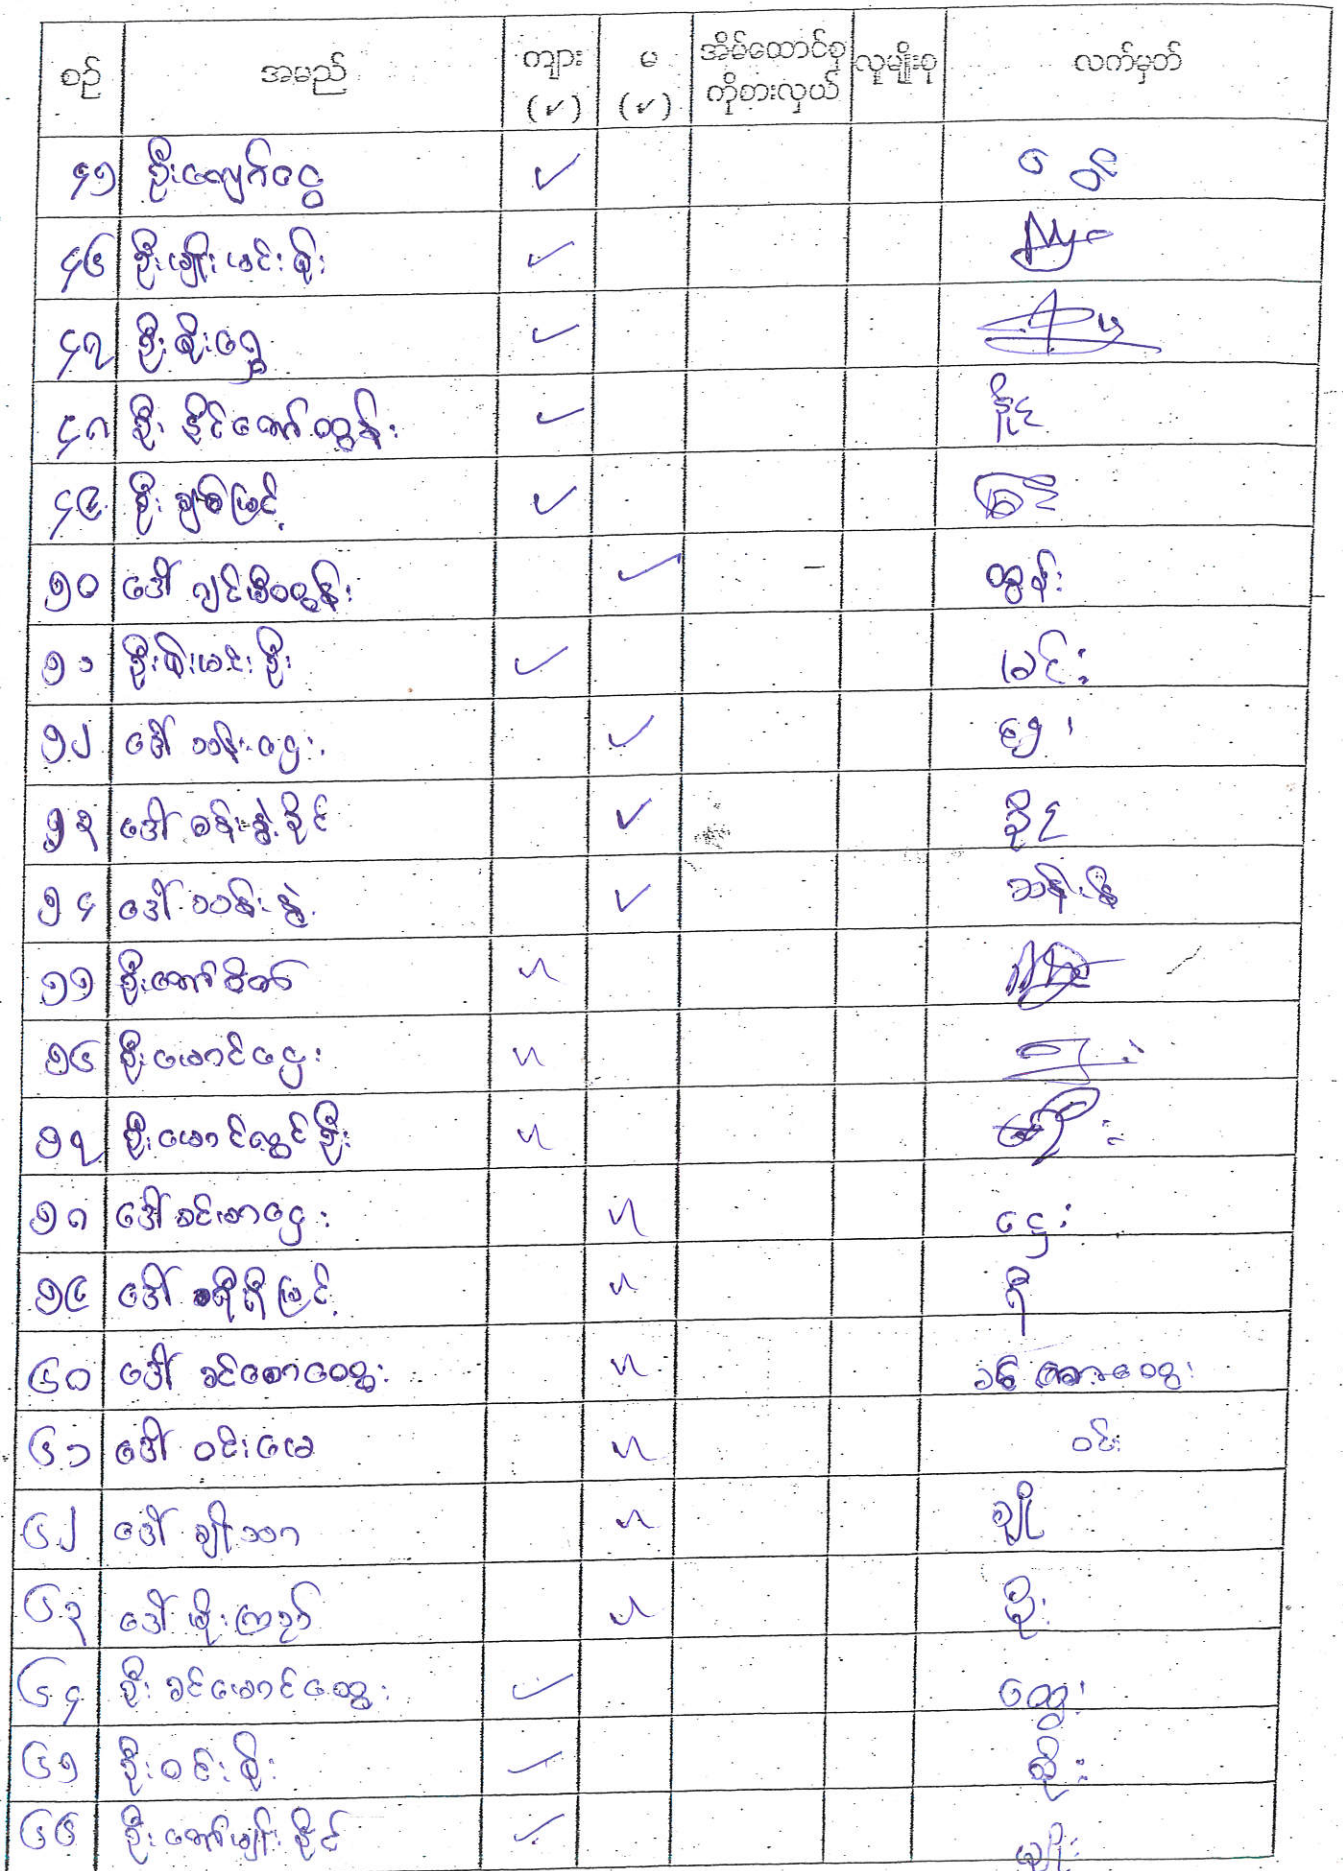 စဉ် အမည် ကျား (✓) မ (✓) အိမ်ထောင်စု ကိုစားလှယ် လူမျိုးစု လက်မှတ်
၄၅ ဦးကျော်ငွေ ✓
၄၆ ဦးမျိုးမင်းစိုး ✓
၄၇ ဦးစိုးရွှေ ✓
၄၈ ဦးနိုင်ကျော်ထွန်း ✓ နိုင်
၄၉ ဦးချစ်မြင့် ✓ မြင့်
၅၀ ဒေါ် ထွန်း ✓ ထွန်း
၅၁ ဦးစိုးမင်းဦး ✓ မင်း
၅၂ ဒေါ်သန်းဌေး ✓ ဌေး
၅၃ ဒေါ်စန်းနွဲ့ခိုင် ✓ ခိုင်
၅၄ ဒေါ်သန်းနွဲ့ ✓ သန်းနွဲ့
၅၅ ဦးကျော်ဇိတ် ✓
၅၆ ဦးမောင်ဌေး ✓
၅၇ ဦးမောင်လွင်ဦး ✓
၅၈ ဒေါ်ခင်မာဌေး ✓ ဌေး
၅၉ ဒေါ် ရီရီမြင့် ✓ ရီ
၆၀ ဒေါ်ခင်စောထွေး ✓ ခင်စောထွေး
၆၁ ဒေါ်ဝင်းမေ ✓ ဝင်း
၆၂ ဒေါ်ချိုသာ ✓ ချို
၆၃ ဒေါ်မိုးကြည် ✓ မိုး
၆၄ ဦးခင်မောင်ထွေး ✓ ထွေး
၆၅ ဦးဝင်းစိုး ✓ စိုး
၆၆ ဦးကျော်မျိုးခိုင် ✓ မျိုး